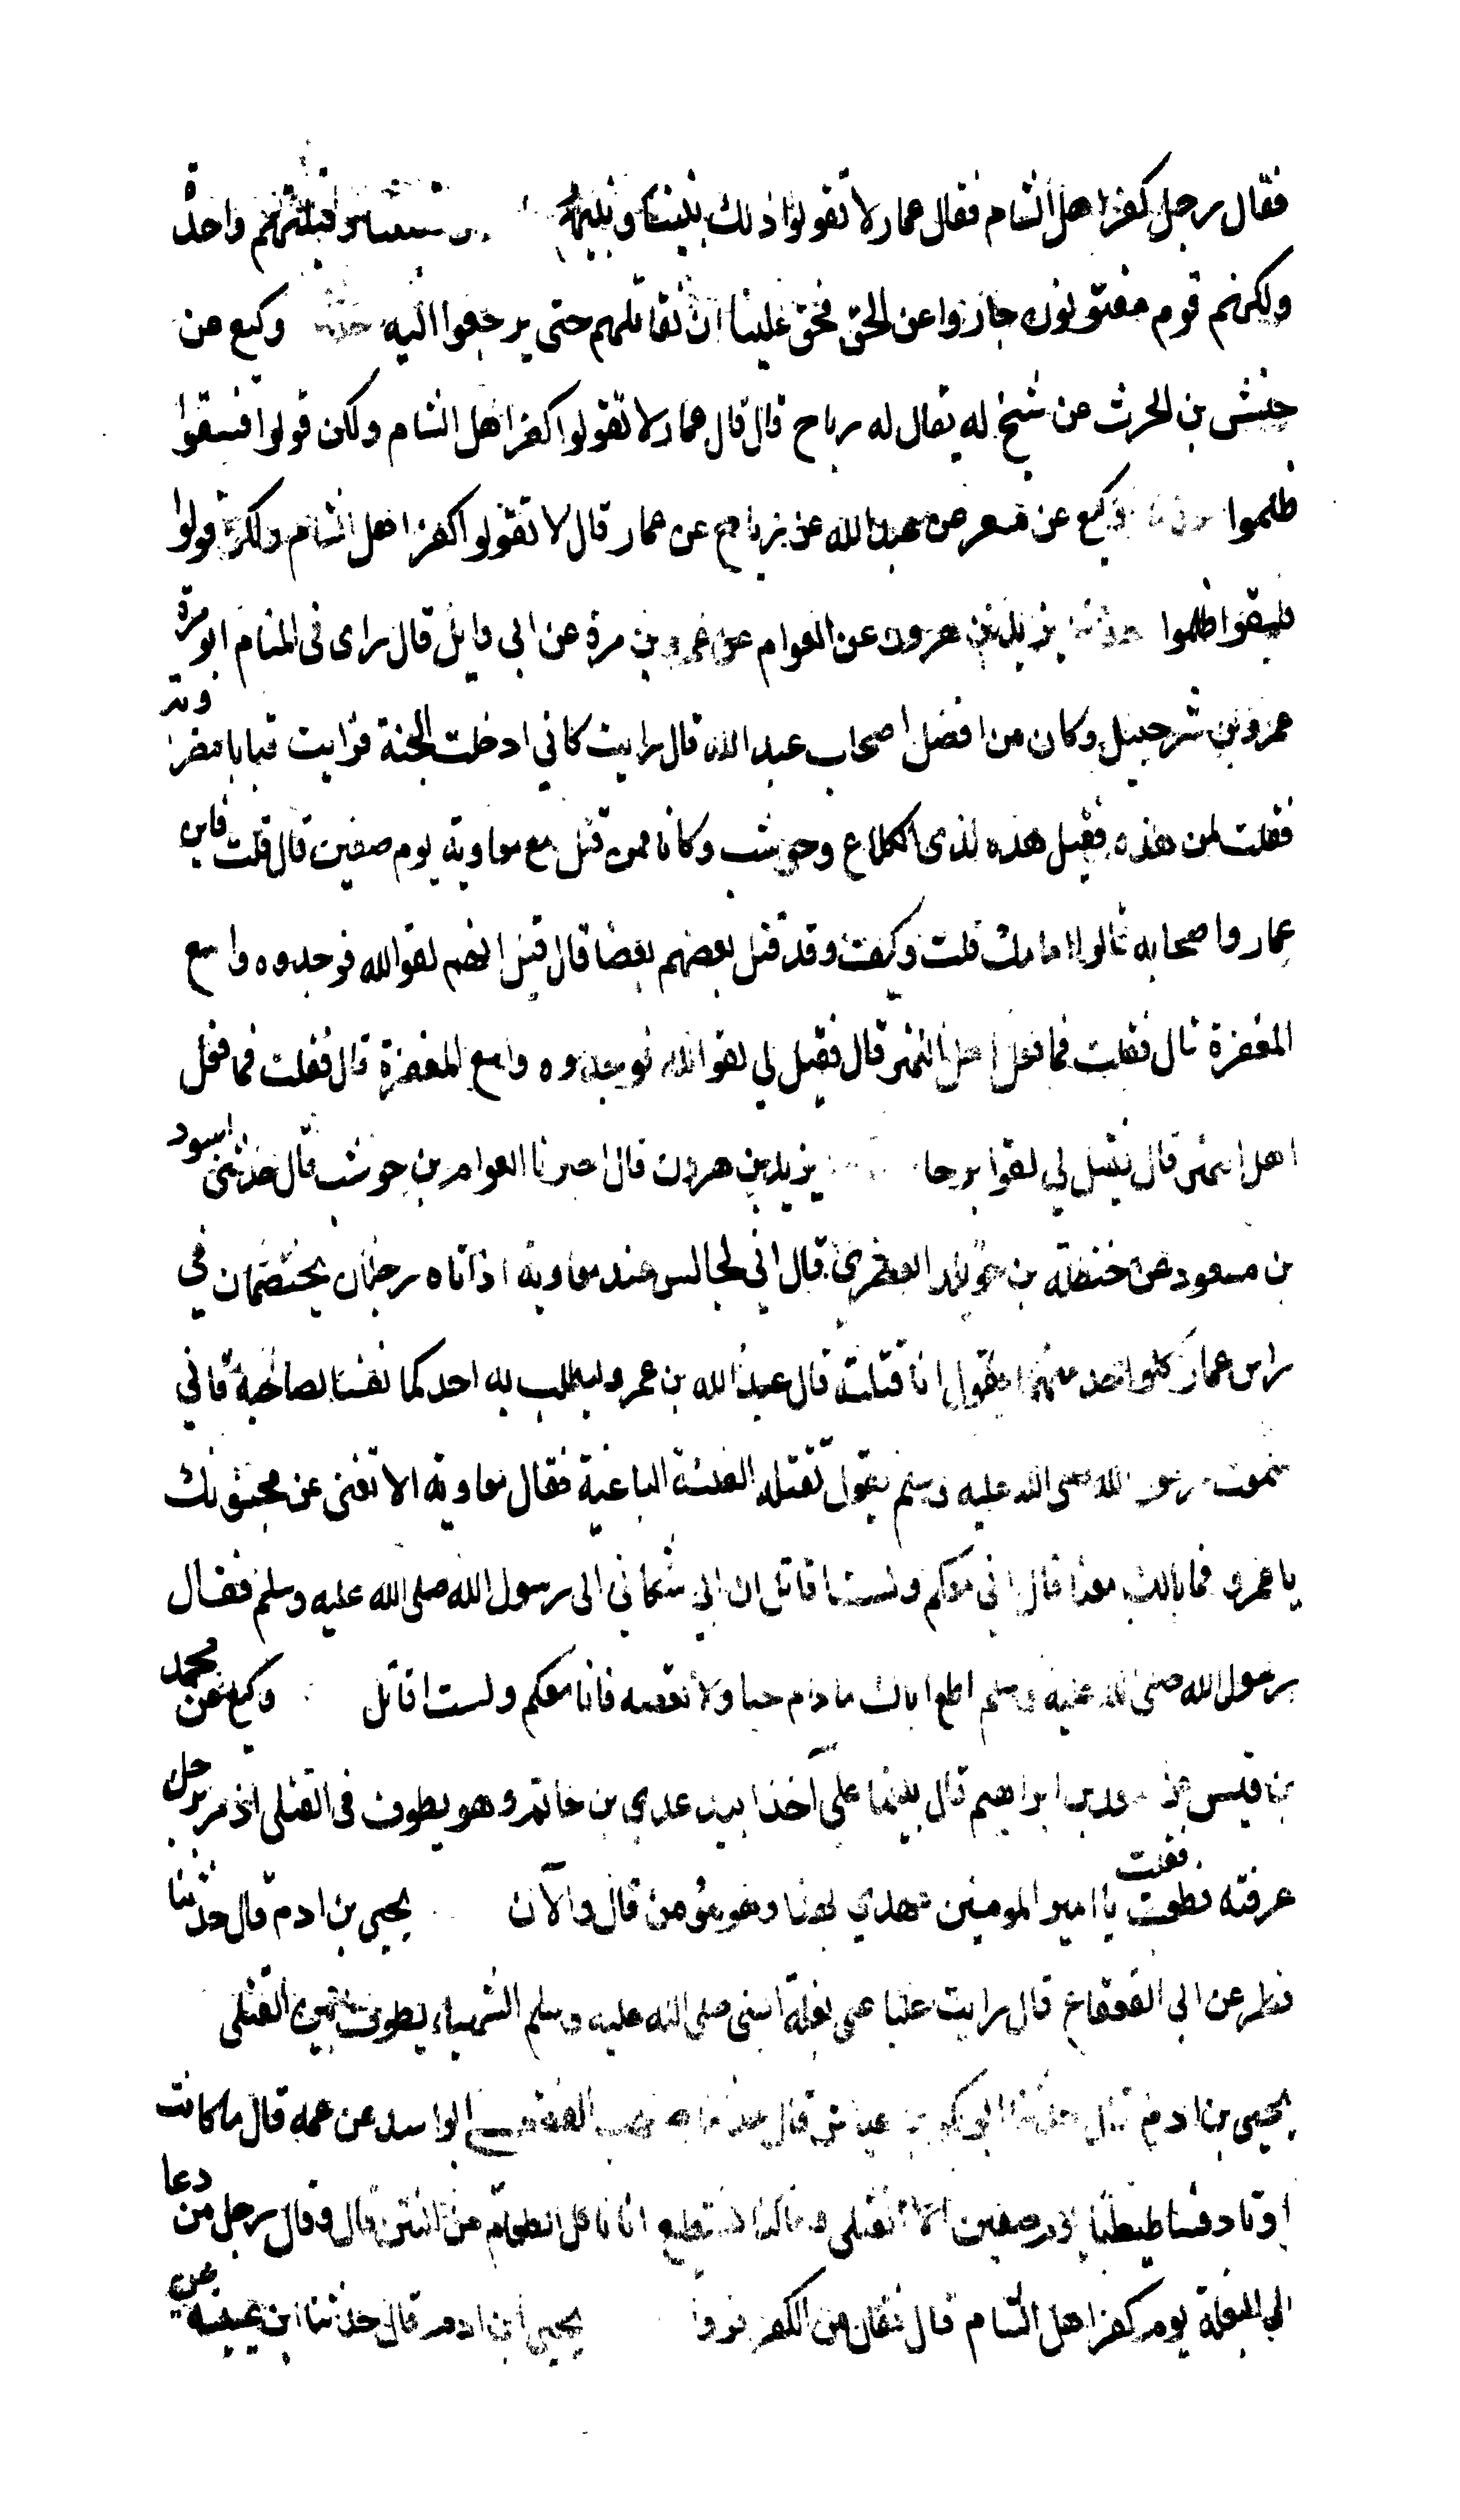 فقال رجل كفر اهل الشام فقال عمار لا تقولوا ذلك نبينا ونبيهم وقبلتهم واحدة
ولكنهم قوم مفتونون جاروا عن الحق فحق علينا ان نقاتلهم حتى يرجعوا اليه حدثنا وكيع عن
حنش بن الحرث عن شيخ له يقال له رباح قال قال عمار لا تقولوا كفر اهل الشام ولكن قولوا فسقوا
ظلموا وكيع عن مسعر عن عبد الله عن رباح عن عمار قال لا تقولوا كفر اهل الشام ولكن قولوا
فسقوا ظلموا حدثنا يزيد بن هرون عن العوام عن عمرو بن مرة عن ابي وايل قال راى في المنام ابو ميسرة
عمرو بن شرحبيل وكان من افضل اصحاب عبد الله قال رايت كاني ادخلت الجنة فرايت قبابا مضروبة
فقلت لمن هذه فقيل هذه لذي الكلاع وحوشب وكانا ممن قتل مع معاوية يوم صفين قال قلت فاين
عمار واصحابه قالوا امامك قلت وكيف وقد قتل بعضهم بعضا قال قيل انهم لقوا الله فوجدوه واسع
المغفرة قال فقلت فما فعل اهل النهر قال فقيل لي لقوا الله فوجدوه واسع المغفرة قال فقلت فما فعل
اهل النهر قال فقيل لي لقوا برحا يزيد بن هرون قال اخبرنا العوام بن حوشب قال حدثني اسود
بن مسعود عن حنظلة بن خويلد العنزي قال اني لجالس عند معاوية اذ اتاه رجلان يختصمان في
راس عمار كل واحد منهما يقول انا قتلته قال عبد الله بن عمرو ليطب به احدكما نفسا لصاحبه فاني
سمعت رسول الله صلى الله عليه وسلم يقول تقتله الفئة الباغية فقال معاوية الا تغني عن مجنونك
يا عمرو فما بالك معنا قال اني معكم ولست اقاتل ان ابي شكاني الى رسول الله صلى الله عليه وسلم فقال
رسول الله صلى الله عليه وسلم اطع اباك ما دام حيا ولا تعصه فانا معكم ولست اقاتل وكيع عن محمد
بن قيس عن سعد بن ابراهيم قال بينما علي آخذا بيد عدي بن حاتم وهو يطوف في القتلى اذ مر برجل
عرفته فقلت يا امير المومنين عهدي بهذا وهو مؤمن قال والآن يحيى بن ادم قال حدثنا
فطر عن ابي القعقاع قال رايت عليا على بغلة النبي صلى الله عليه وسلم الشهباء يطوف بين القتلى
يحيى بن ادم قال حدثنا ابو بكر بن عياش قال الفقعسي ابو اسد عن عمه قال ما كانت
اوتاد فساطيطنا يوم صفين الا القتلى وما كنا نستطيع ان ناكل الطعام من النتن قال وقال رجل من دعا
الى البغلة يوم كفر اهل الشام قال فقال من الكفر فروا يحيى بن ادم قال حدثنا ابن عيينة عن